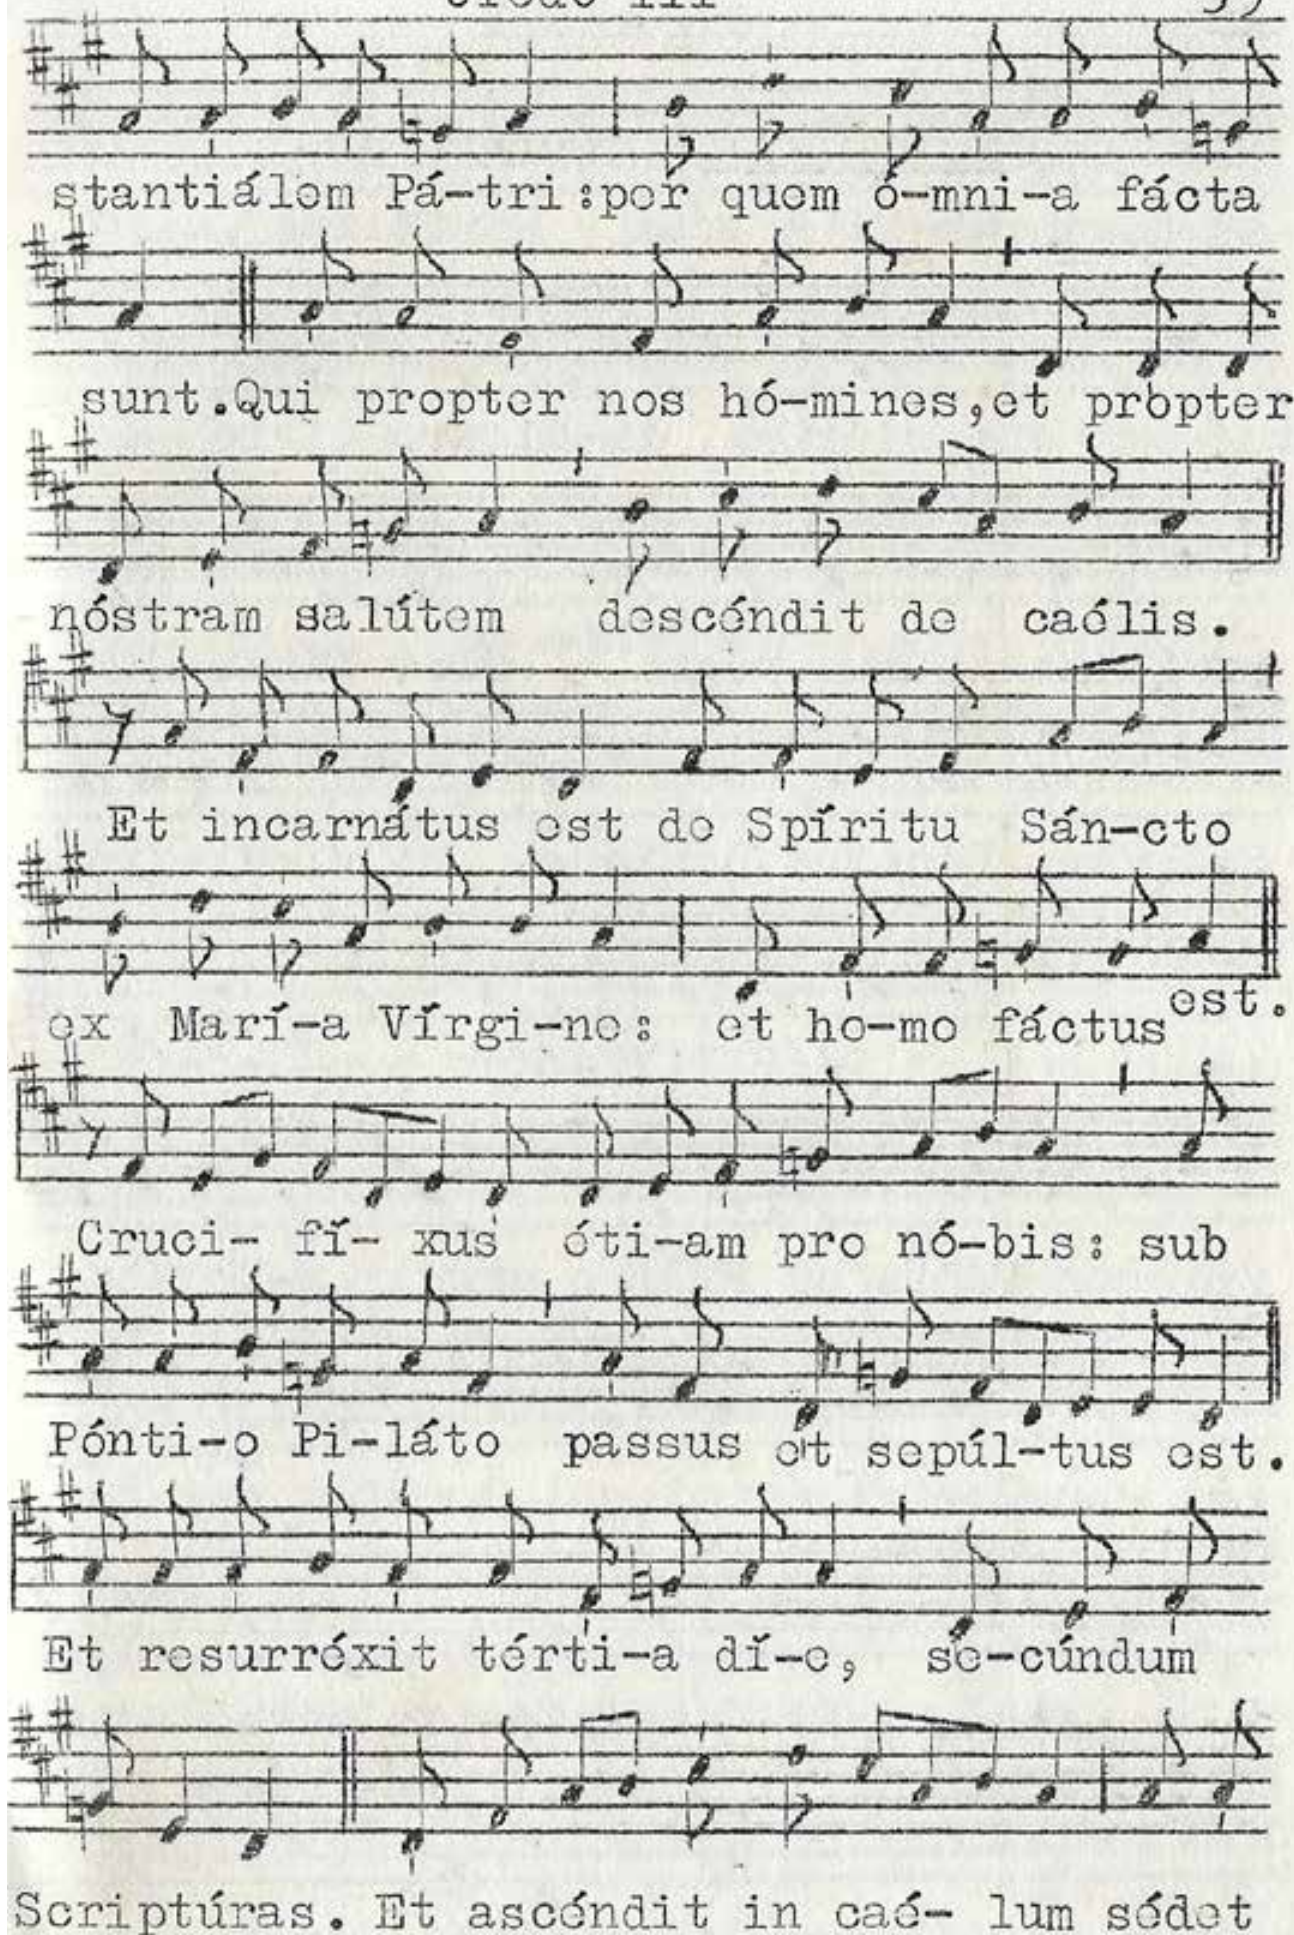 Credo III 39
stantiálem Pá-tri:per quem ó-mni-a fácta
sunt.Qui propter nos hó-mines,et propter
nóstram salútem descéndit de caélis.
Et incarnátus est de Spíritu Sán-cto
ex Marí-a Vírgi-ne: et ho-mo fáctus est.
Cruci- fí- xus éti-am pro nó-bis: sub
Pónti-o Pi-láto passus et sepúl-tus est.
Et resurréxit térti-a dí-e, se-cúndum
Scriptúras. Et ascéndit in caé- lum sédet